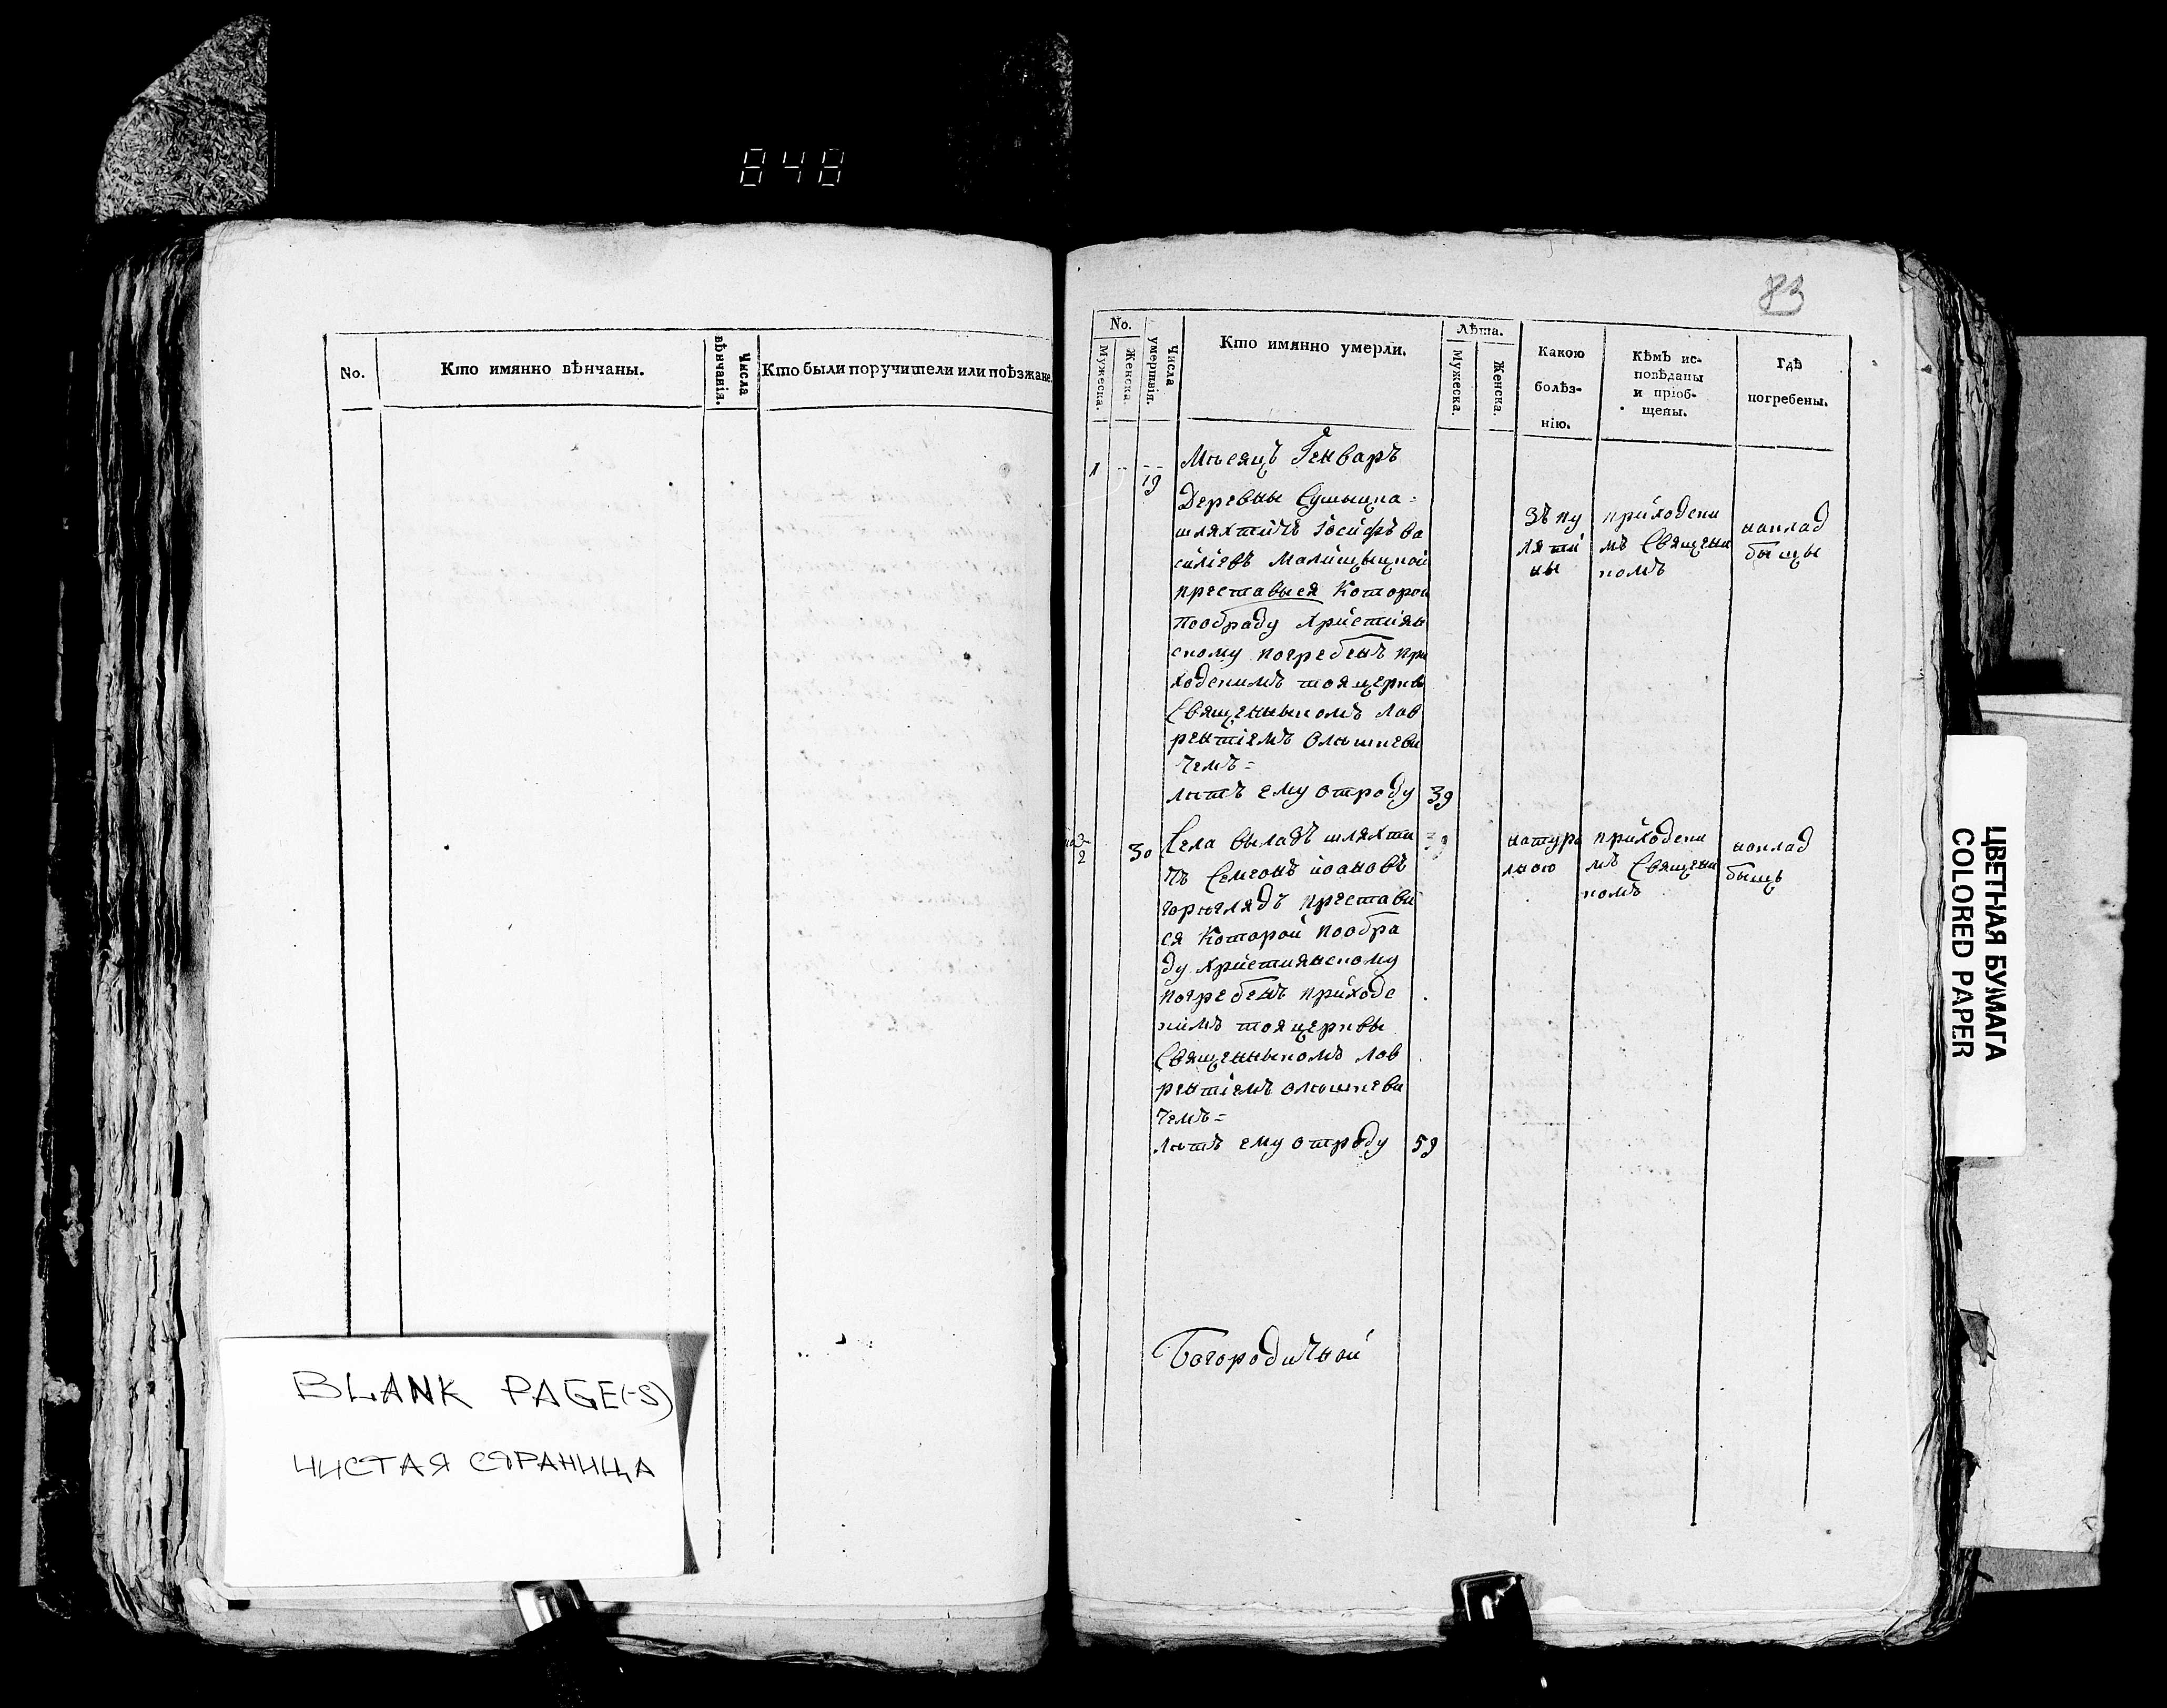 848
No.
Кто имянно вѣнчаны.
Числа вѣнчанія.
Кто были поручители или поѣзжане.
BLANK PAGE(-S)
ЧИСТАЯ СТРАНИЦА
83
No.
Мужеска.
Женска.
Числа умертвія.
Кто имянно умерли.
Лѣта.
Мужеска.
Женска.
Какою
болѣз-
нію.
Кѣмъ ис-
повѣданы
и пріоб-
щены.
Гдѣ
погребены.
Мѣсяцъ Генваръ
1
19
Деревны
шляхтичъ Іосифъ Ва
силіевъ
преставися Которой
пообраду Християн
скому погребенъ при
ходскимъ тоя церкви
Священыкомъ Лав
рентіемъ Олѣшкеви
чемъ=
лѣтъ ему отроду 39
ны
приходски
мъ Священи
комъ
наклад
быщы
2
30
Села шляхти
чъ Семеонъ Иоановъ
престави
ся Которой пообра
ду Християнскому
погребенъ приходс
кимъ тоя церкви
Священыкомъ Лав
рентіемъ Олѣшкеви
чемъ=
лѣтъ ему отроду 59
натура
лною
приходски
мъ Священи
комъ
наклад
быщъ
Богородичной
ЦВЕТНАЯ БУМАГА
COLORED PAPER